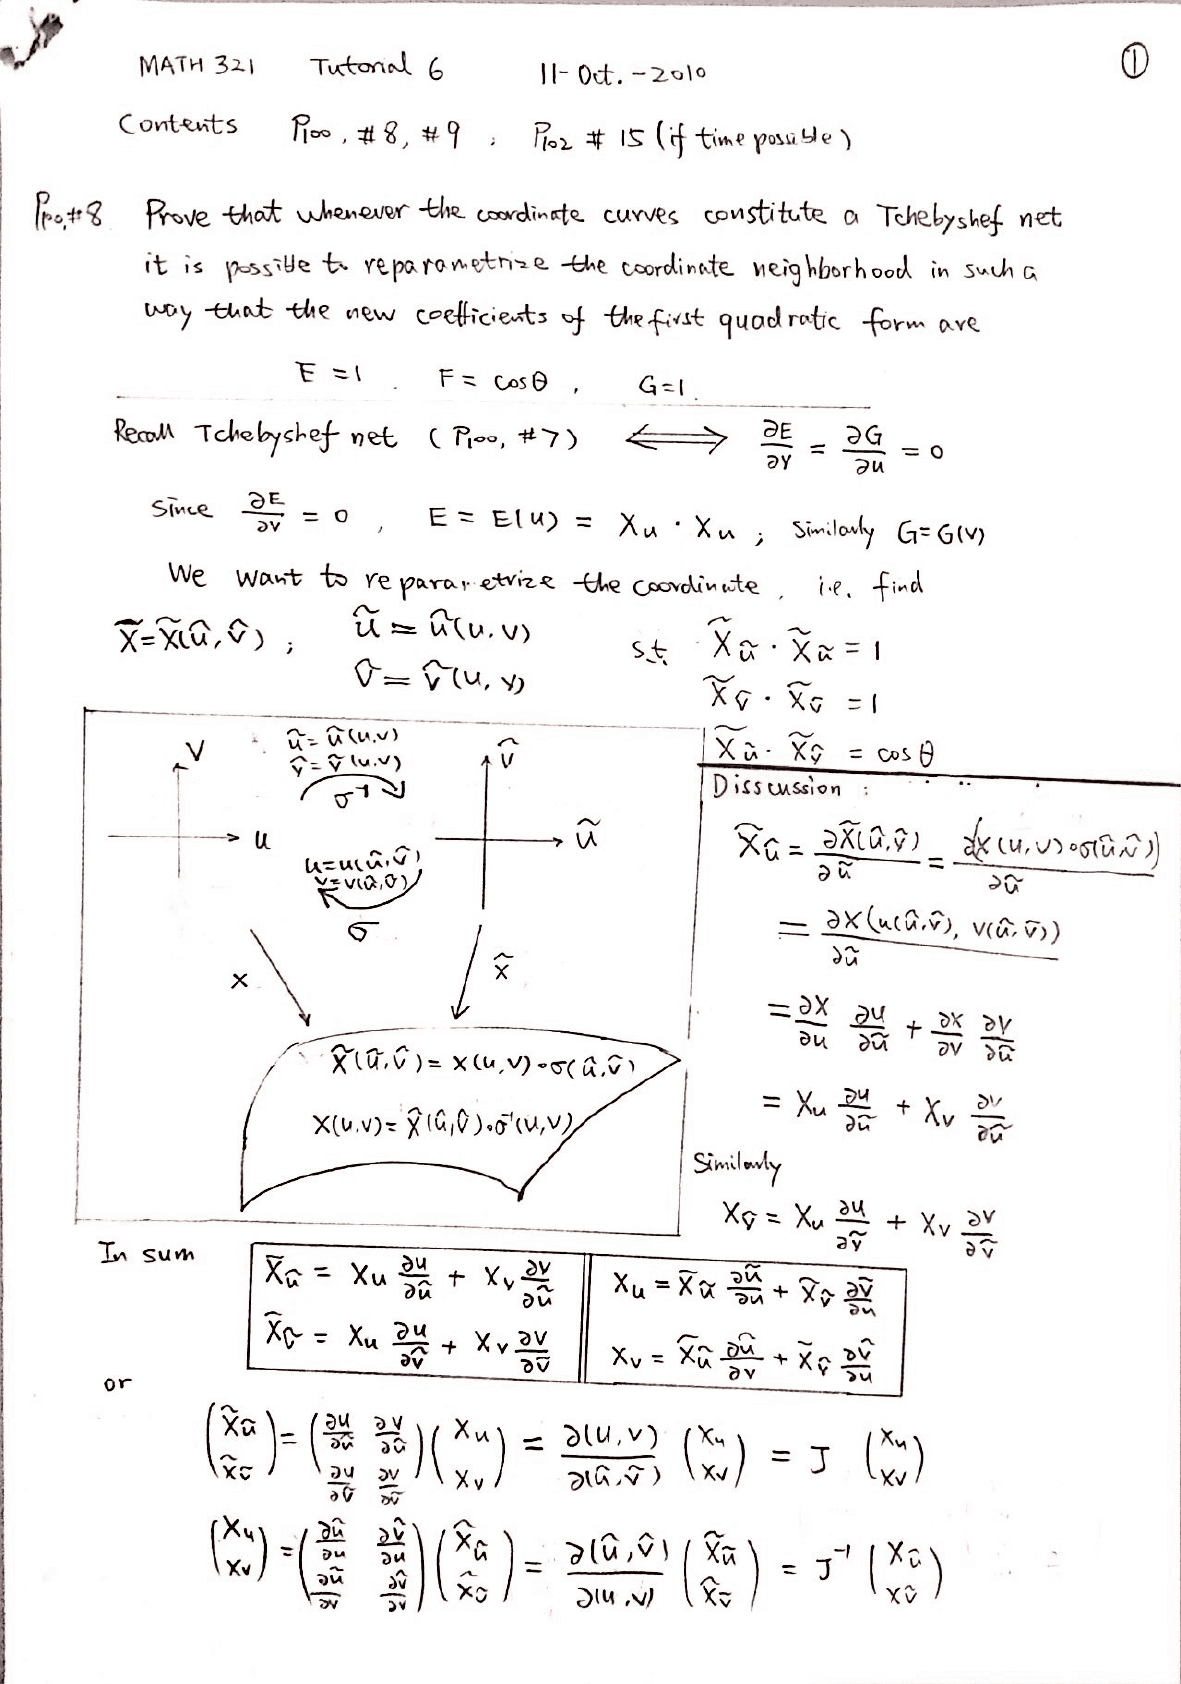 MATH 321 Tutorial 6 11-Oct.-2010 ①
Contents P100, #8, #9 ; P102 # 15 (if time possible)
P100,#8 Prove that whenever the coordinate curves constitute a Tchebyshef net
it is possible to reparametrize the coordinate neighborhood in such a
way that the new coefficients of the first quadratic form are
E = 1 . F = cosθ , G=1.
Recall Tchebyshef net (P100, #7) ⟺ ∂E/∂v = ∂G/∂u = 0
Since ∂E/∂v = 0 , E = E(u) = Xu · Xu ; Similarly G=G(v)
We want to reparametrize the coordinate , i.e. find
X̃=X̃(ũ,ṽ) ; ũ = ũ(u,v) s.t. X̃ũ · X̃ũ = 1
ṽ = ṽ(u,v) X̃ṽ · X̃ṽ = 1
X̃ũ · X̃ṽ = cosθ
V
ũ = ũ(u,v)
ṽ = ṽ(u,v)
σ⁻¹
ṽ
u
ũ
u=u(ũ,ṽ)
v=v(ũ,ṽ)
σ
x
x̃
X̃(ũ,ṽ) = X(u,v)∘σ(ũ,ṽ)
X(u,v) = X̃(ũ,ṽ)∘σ⁻¹(u,v)
Disscussion :
X̃ũ = ∂X̃(ũ,ṽ)/∂ũ = ∂X(u,v)∘σ(ũ,ṽ))/∂ũ
= ∂X(u(ũ,ṽ), v(ũ,ṽ))/∂ũ
= ∂X/∂u ∂u/∂ũ + ∂X/∂v ∂v/∂ũ
= Xu ∂u/∂ũ + Xv ∂v/∂ũ
Similarly
Xṽ = Xu ∂u/∂ṽ + Xv ∂v/∂ṽ
In sum
X̃ũ = Xu ∂u/∂ũ + Xv ∂v/∂ũ
X̃ṽ = Xu ∂u/∂ṽ + Xv ∂v/∂ṽ
Xu = X̃ũ ∂ũ/∂u + X̃ṽ ∂ṽ/∂u
Xv = X̃ũ ∂ũ/∂v + X̃ṽ ∂ṽ/∂u
or
(X̃ũ X̃ṽ) = (∂u/∂ũ ∂v/∂ũ ∂u/∂ṽ ∂v/∂ṽ)(Xu Xv) = ∂(u,v)/∂(ũ,ṽ) (Xu Xv) = J (Xu Xv)
(Xu Xv) = (∂ũ/∂u ∂ṽ/∂u ∂ũ/∂v ∂ṽ/∂v)(X̃ũ X̃ṽ) = ∂(ũ,ṽ)/∂(u,v) (X̃ũ X̃ṽ) = J⁻¹ (Xũ Xṽ)